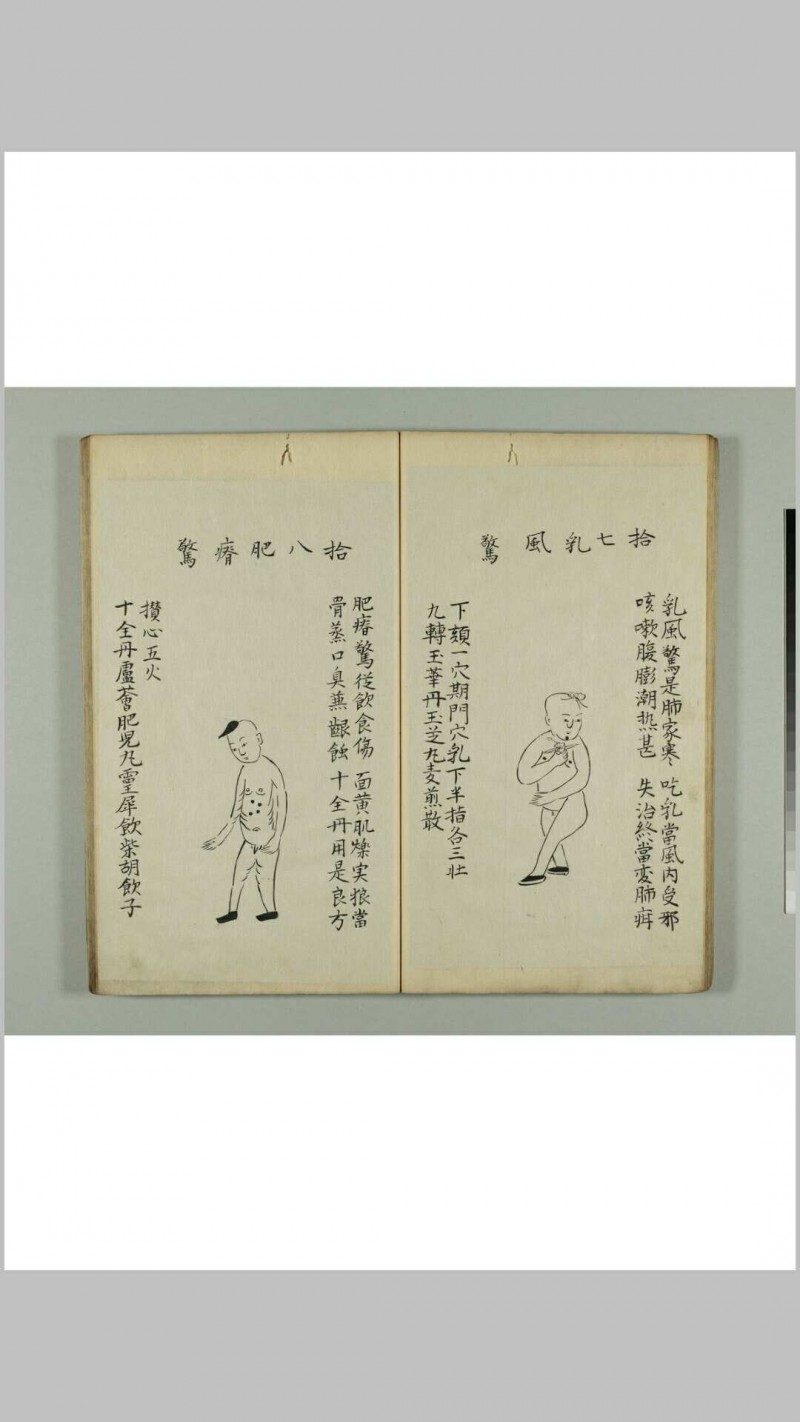 拾七乳風驚
乳風驚是肺家寒 吃乳當風内受邪
咳嗽腹膨潮热甚 失治終當变肺疳
下頦一穴期門穴乳下半指各三壮
九轉玉華丹玉芝丸麦煎散
拾八肥瘠驚
肥瘠驚從飲食傷 面黄肌燥実狼當
骨蒸口臭蕪齦蝕 十全丹用是良方
攢心五火
十全丹盧薈肥児丸靈犀飲柴胡飲子